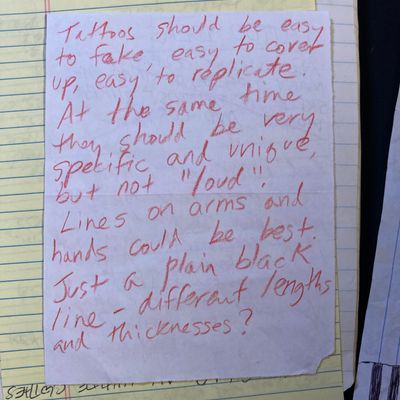 Tattoos should be easy
to fake, easy to cover
up, easy to replicate.
At the same time
they should be very
specific and unique,
but not "loud".
Lines on arms and
hands could be best.
Just a plain black
line - different lengths
and thicknesses?